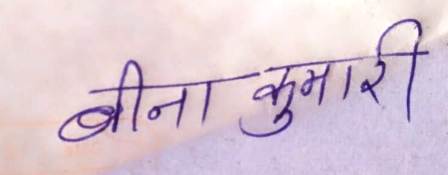 बीना कुमारी